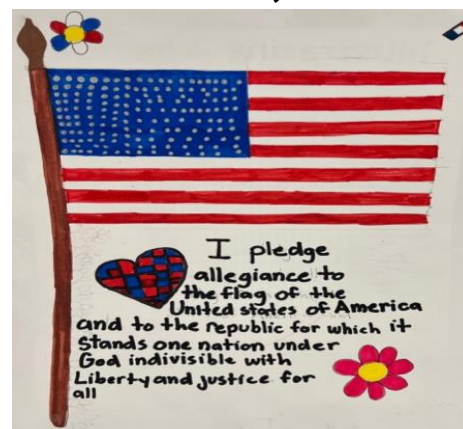 I pledge
allegiance to
the flag of the
United states of America
and to the republic for which it
Stands one nation under
God indivisible with
Liberty and justice for
all